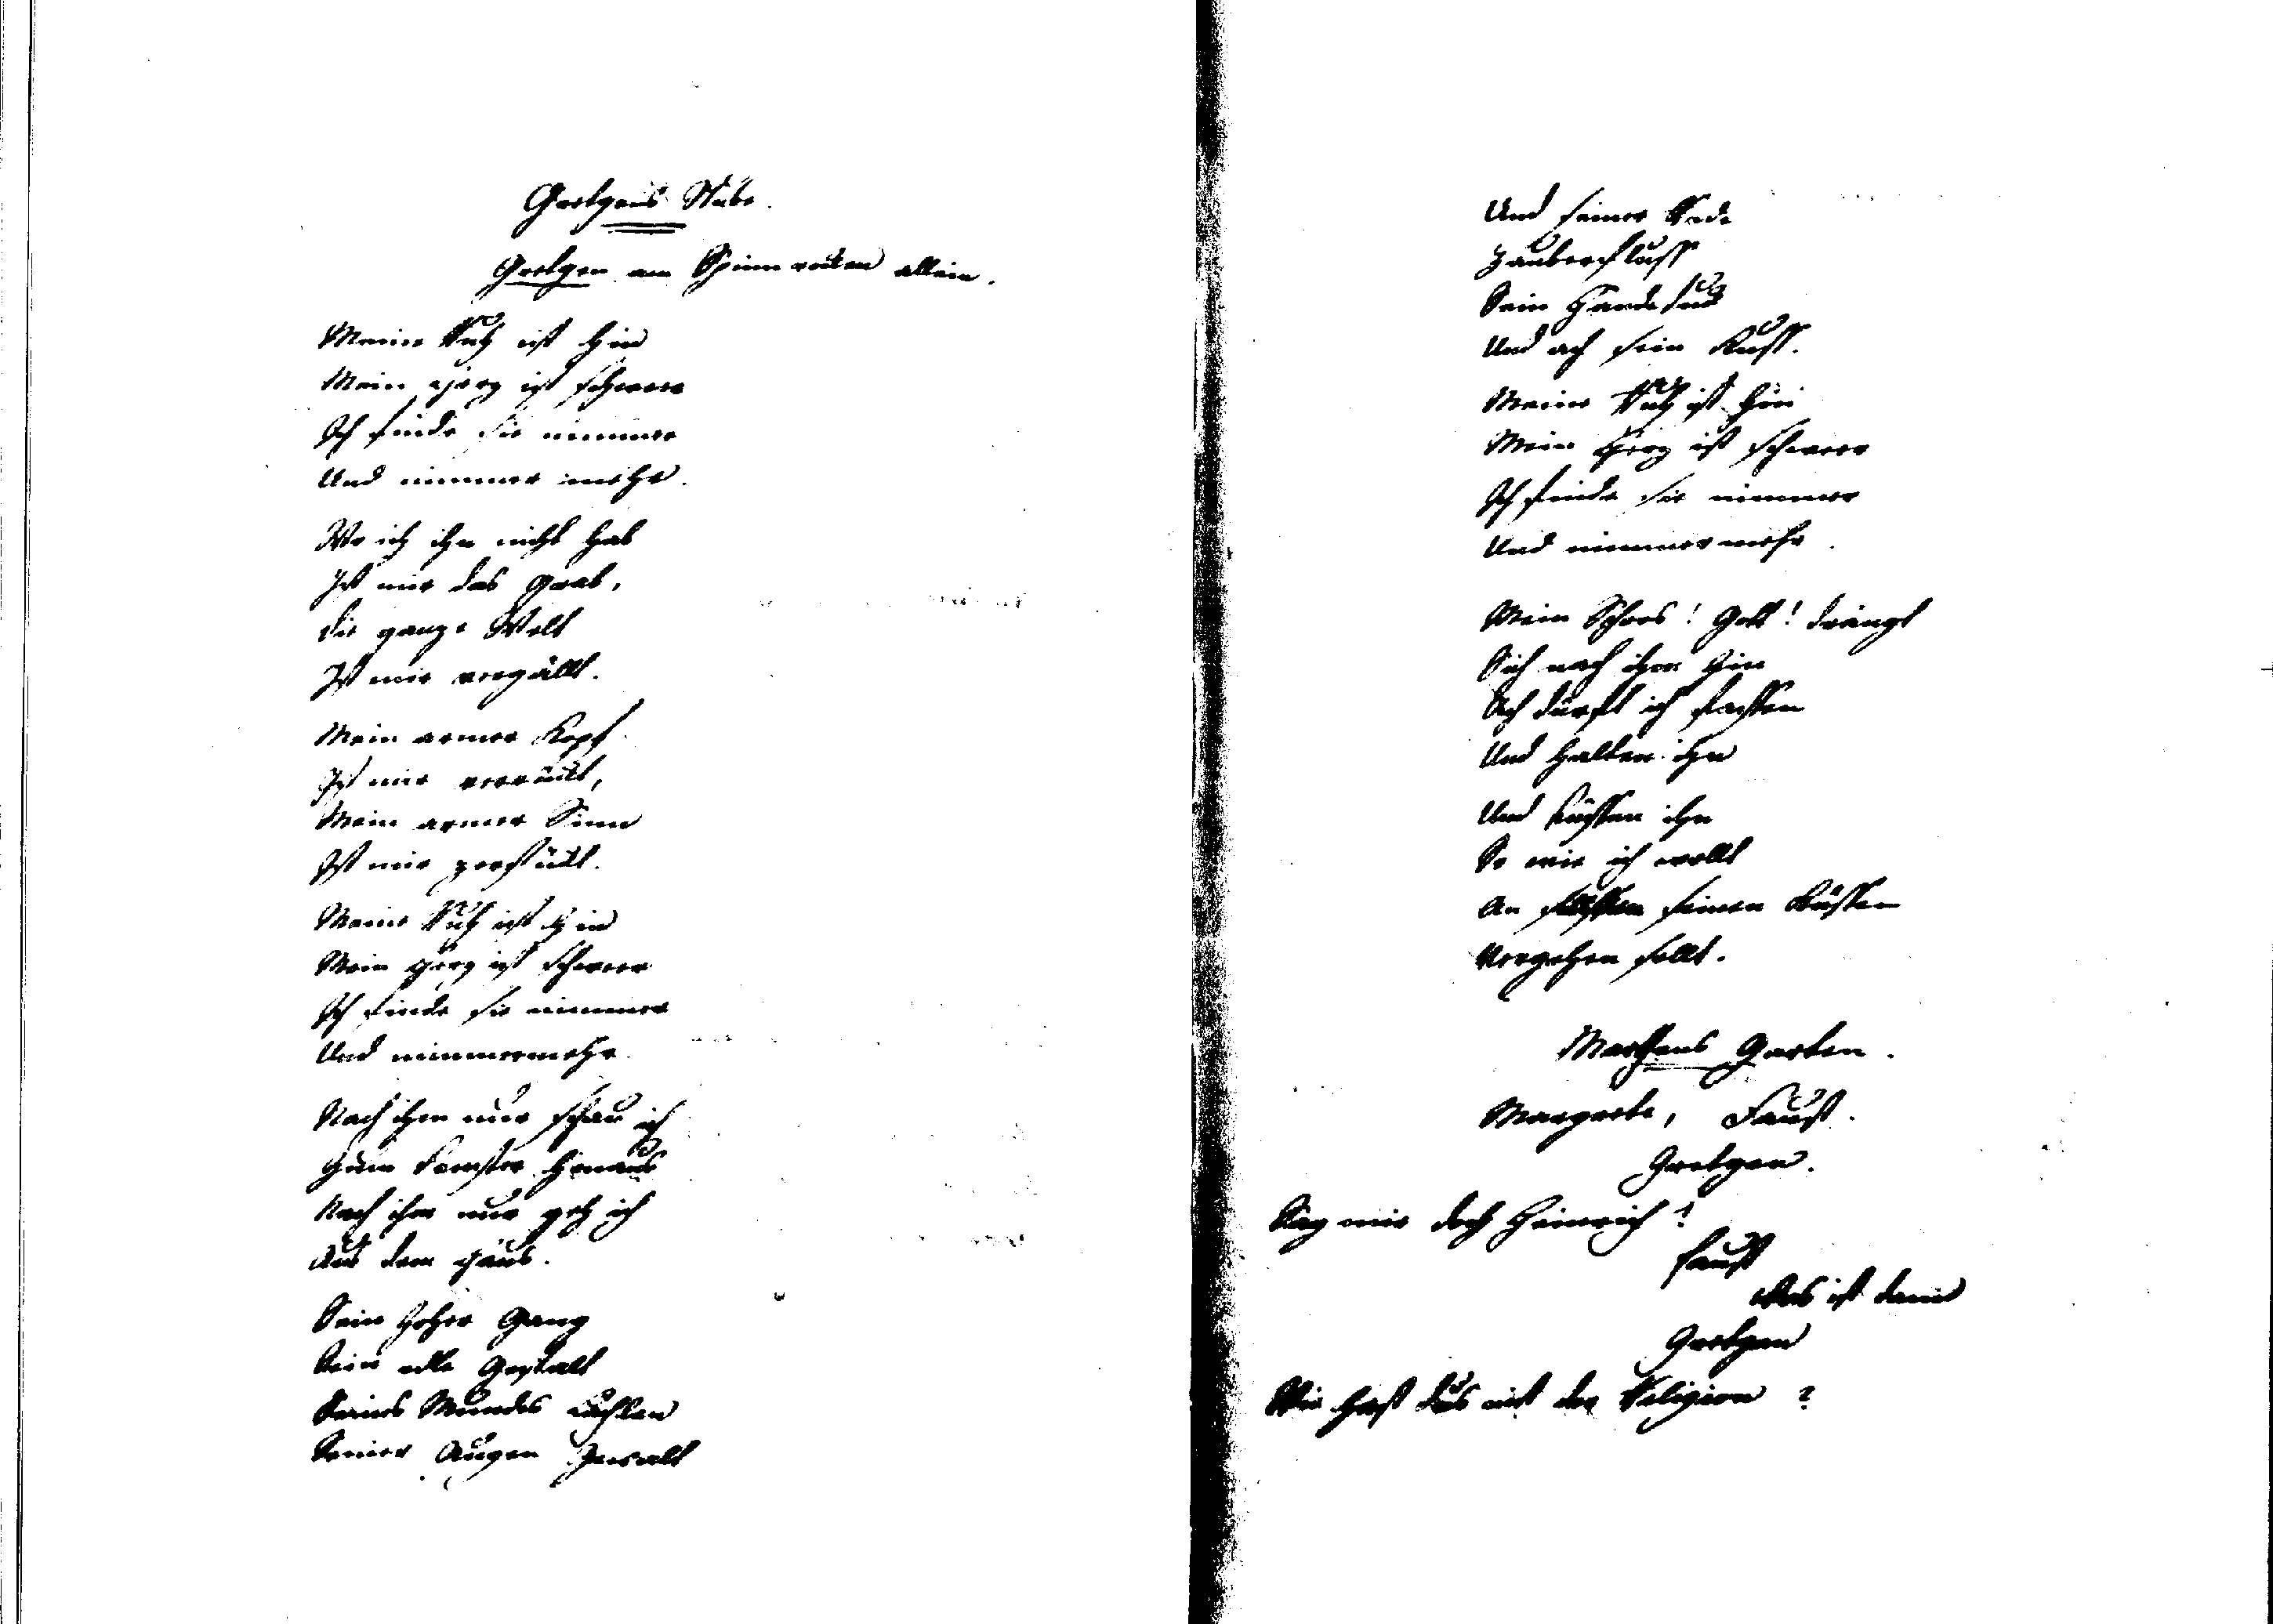 Gretgens Stube.
Gretgen am Spinnrocken allein.
Meine Ruh ist hin
Mein Herz ist schweer
Ich finde sie nimmer
Und nimmer mehr.
Wo ich ihn nicht hab
Ist mir das Grab,
die ganze Welt
Ist mir vergällt.
Mein armer Kopf
Ist mir verrückt,
Mein armer Sinn
Ist mir zerstückt.
Meine Ruh ist hin
Mein Herz ist schweer
Ich finde sie nimmer
Und nimmermehr.
Nach ihm nur schau ich
Zum Fenster hinaus
Nach ihm nur geh ich
Aus dem Haus.
Sein hoher Gang
Sein edle Gestalt
Seines Mundes Lächlen
Seiner Augen Gewalt
Und seiner Rede
Zauberfluss
Sein Händedruck
Und ach sein Kuss.
Meine Ruh ist hin
Mein Herz ist schweer
Ich finde sie nimmer
Und nimmermehr.
Mein Schoos! Gott! drängt
Sich nach ihm hin
Ach dürft ich fassen
Und halten ihn
Und küssen ihn
So wie ich wollt
An seinen Küssen
Vergehen sollt.
Marthens Garten.
Margrete, Faust.
Gretgen.
Sag mir doch Heinrich!
Faust
Was ist dann
Gretgen
Wie hast dus mit der Religion?